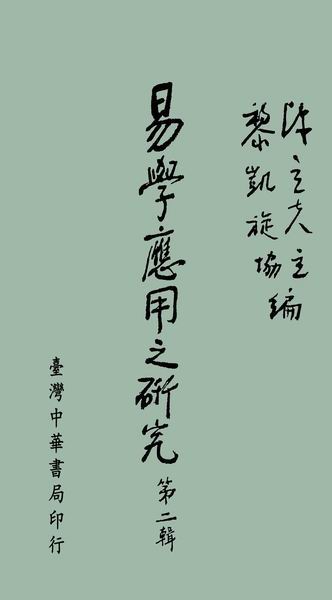 陳立夫主編
黎凱旋協編
易學應用之研究
第二輯
臺灣中華書局印行